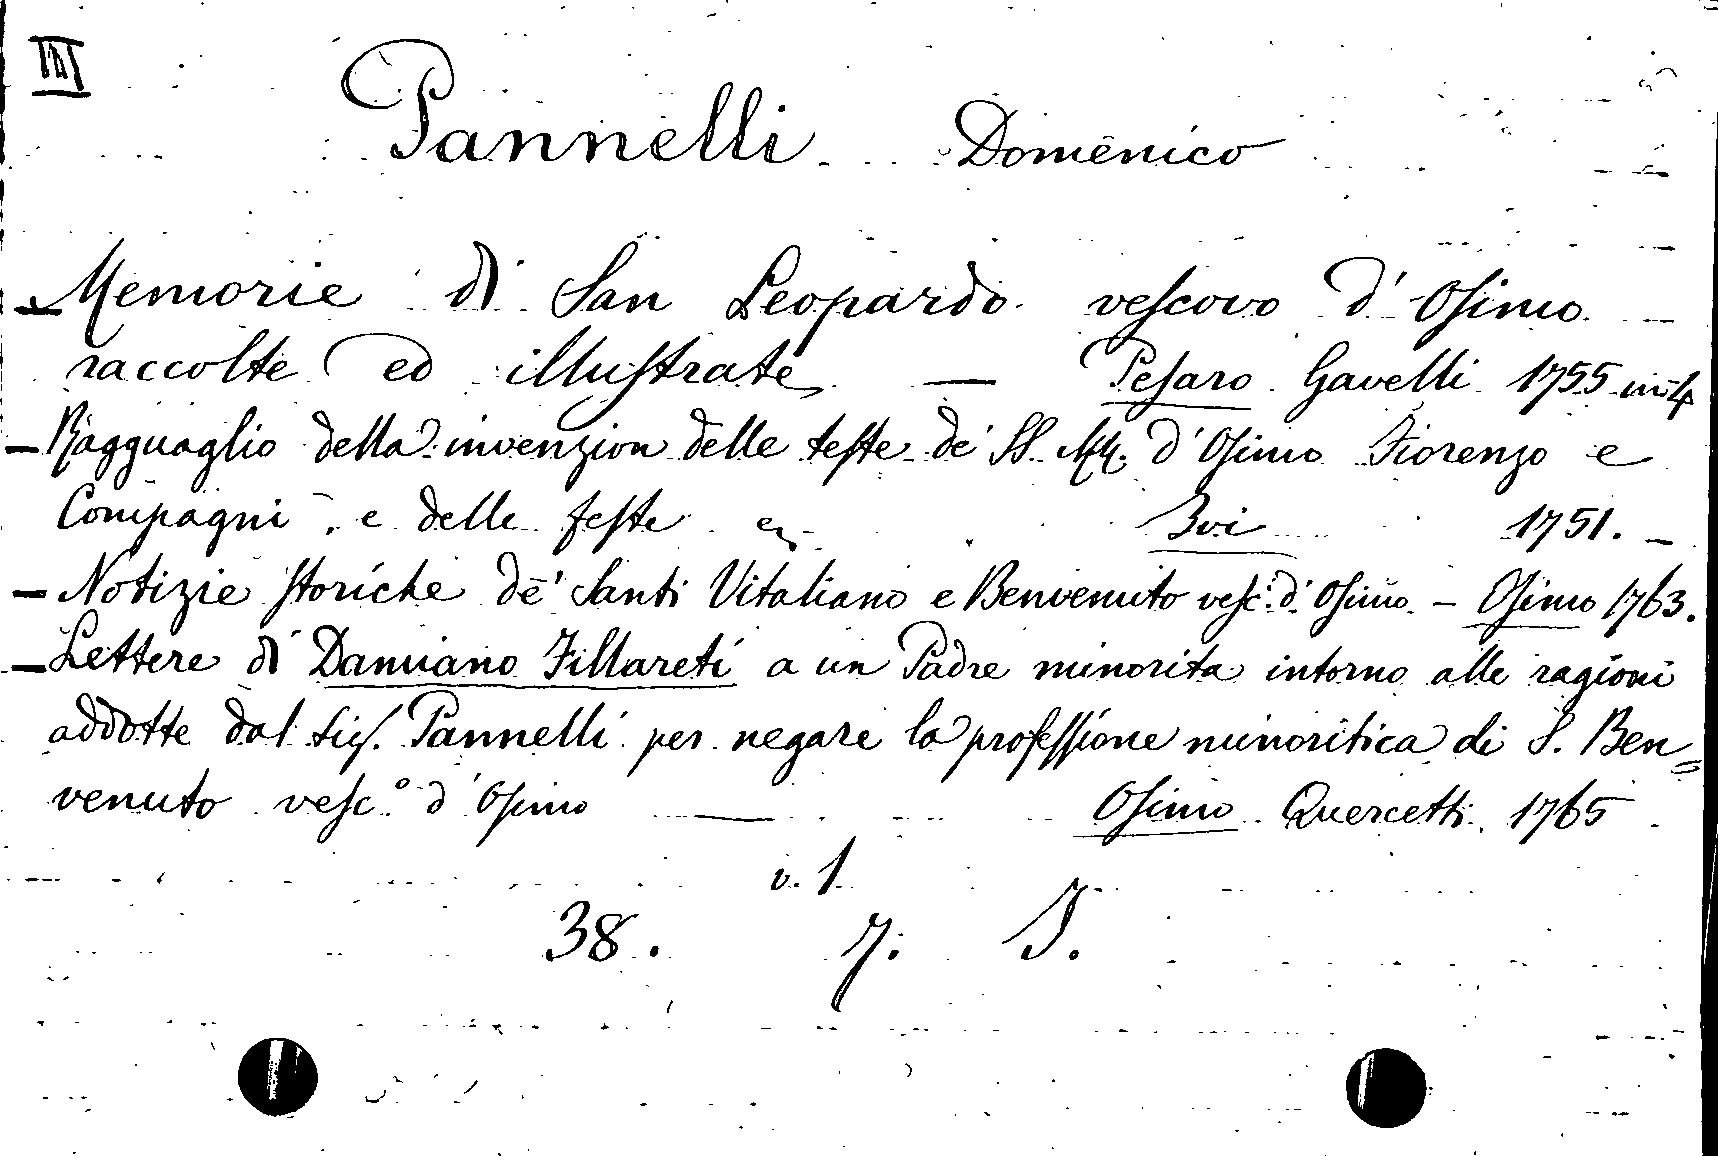 III
Pannelli Domenico
- Memorie di San Leopardo vescovo d'Osimo
raccolte ed illustrate — Pesaro Gavelli 1755 in-4
- Ragguaglio della invenzion delle teste de' SS. MM. d'Osimo Fiorenzo e
Compagni, e delle feste Ivi 1751. -
- Notizie storiche de' Santi Vitaliano e Benvenuto vesc.i d'Osimo - Osimo 1763.
- Lettere di Damiano Fillareti a un Padre minorita intorno alle ragioni
addotte dal Sig. Pannelli per negare la professione minoritica di S. Ben=
venuto vesc.º d'Osimo — Osimo Quercetti 1765
v. 1
38. 7. I.